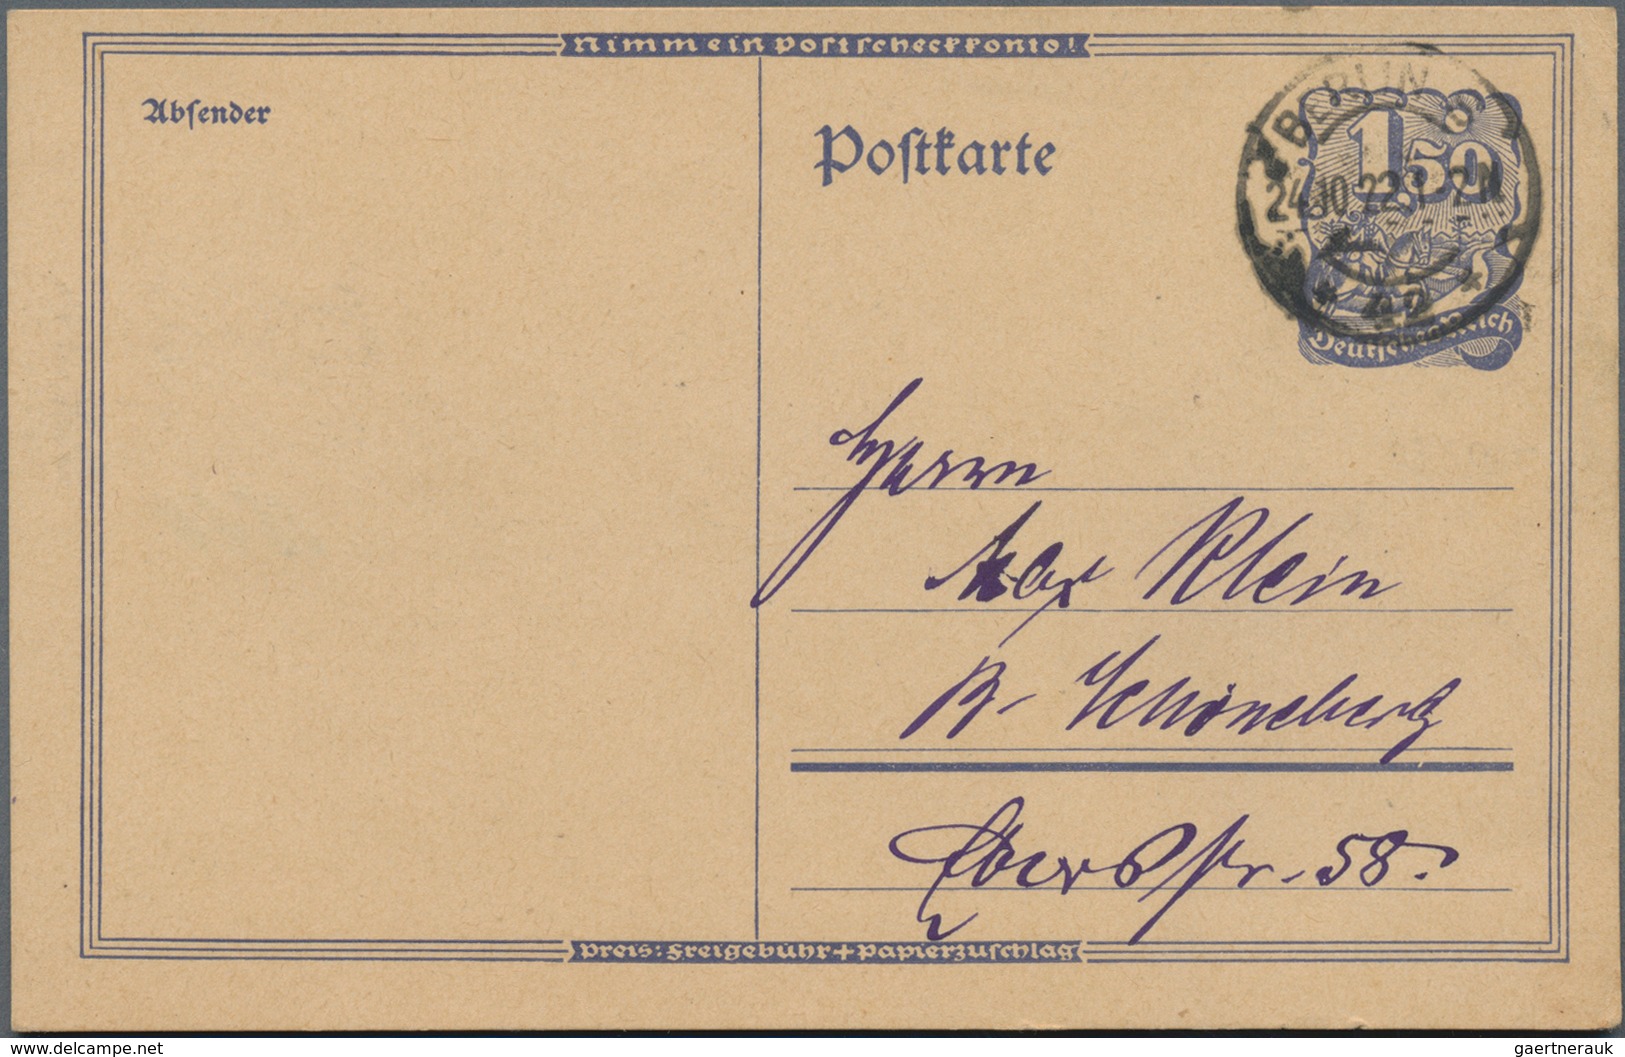 Nimm ein Postscheckkonto!
Absender
Postkarte
BERLIN
1 50
24.10.22.
Deutsches Reich
Herrn
Max Klein
B- Schöneberg
Ebersstr. 58.
Preis: Freigebühr + Papierzuschlag
delcampe.net
gaertnerauk